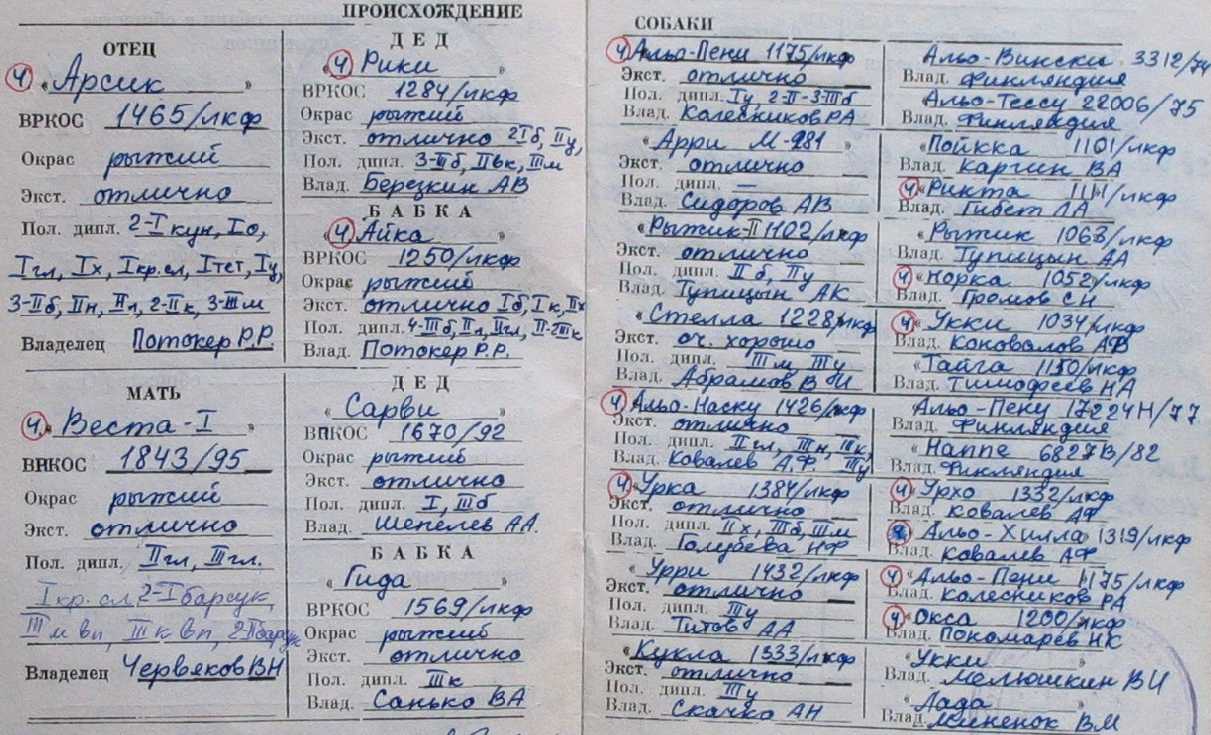 ПРОИСХОЖДЕНИЕ
ОТЕЦ
Ч «Арсик»
ВРКОС 1465/лкф
Окрас рыжий
Экст. отлично
Пол. дипл. 2-I кун, Iо,
Iгл, Iх, Iкр.сл, Iтет, Iу,
3-IIб, IIн, IIл, 2-IIк, 3-IIIм
Владелец Потокер Р.Р.
МАТЬ
Ч «Веста-I
ВПКОС 1843/95
Окрас рыжий
Экст. отлично
Пол. дипл. IIгл, IIIгл.
Iкр. сл 2-Iбарсук,
IIIм вп, IIIк вп, 2-IIбарсук
Владелец Червяков ВН
ДЕД
«Ч Рики »
ВРКОС 1284/лкф
Окрас рыжий
Экст. отлично 2Iб, IIу,
Пол. дипл. 3-IIIб, IIвк, IIIм
Влад. Березкин АВ
БАБКА
«Ч Айка »
ВРКОС 1250/лкф
Окрас рыжий
Экст. отлично Iб, Iк, IIх
Пол. дипл. 4-IIIб, IIл, IIгл, II-2IIIк
Влад. Потокер Р.Р.
ДЕД
« Сарви »
ВПКОС 1670/92
Окрас рыжий
Экст. отлично
Пол. дипл. I, IIIб
Влад. Шепелев АА.
БАБКА
« Гида »
ВРКОС 1569/лкф
Окрас рыжий
Экст. отлично
Пол. дипл. IIIк
Влад. Санько ВА
СОБАКИ
Ч Альо-Пени 1175/лкф
Экст. отлично
Пол. дипл. Iу, 2-II-3-IIIб
Влад. Колесников РА
«Арри М-281
Экст. отлично
Пол. дипл. —
Влад. Сидоров АВ
«Рыжик-II 1102/лкф
Экст. отлично
Пол. дипл. IIб, IIу
Влад. Тупицын АК
«Стелла 1228/лкф
Экст. оч. хорошо
Пол. дипл. IIIм, IIIу
Влад. Абрамов В И
Ч Альо-Наску 1426/лкф
Экст. отлично
Пол. дипл. IIгл, IIIн, IIIк,
Влад. Ковалев А.Ф. IIIу
Ч Урка 1384/лкф
Экст. отлично
Пол. дипл. IIх, IIIб, IIIм
Влад. Голубева НФ
«Урри 1432/лкф
Экст. отлично
Пол. дипл. IIIу
Влад. Титов АА
«Кукла 1333/лкф
Экст. отлично
Пол. дипл. IIIу
Влад. Скачко АН
Альо-Вински 3312/74
Влад. Финляндия
Альо-Тессу 22006/75
Влад. Финляндия
«Пойкка 1101/лкф
Влад. Каргин ВА
Ч «Рикта 1111/лкф
Влад. Гибет ЛА
«Рыжик 1063/лкф
Влад. Тупицын АА
Ч «Норка 1052/лкф
Влад. Громов СН
Ч «Укки 1034/лкф
Влад. Коновалов АФ
«Тайга 1150/лкф
Влад. Тимофеев НА
Альо-Пеку 17224Н/77
Влад. Финляндия
«Наппе 6827В/82
Влад. Финляндия
Ч «Урхо 1332/лкф
Влад. Ковалев АФ
Ч «Альо-Хилла 1319/лкф
Влад. Ковалев АФ
Ч «Альо-Пени 1175/лкф
Влад. Колесников РА
Ч «Окса 1200/лкф
Влад. Пономарёв НК
«Укки »
Влад. Мелюшкин ВИ
«Лада »
Влад. Миненок ВМ